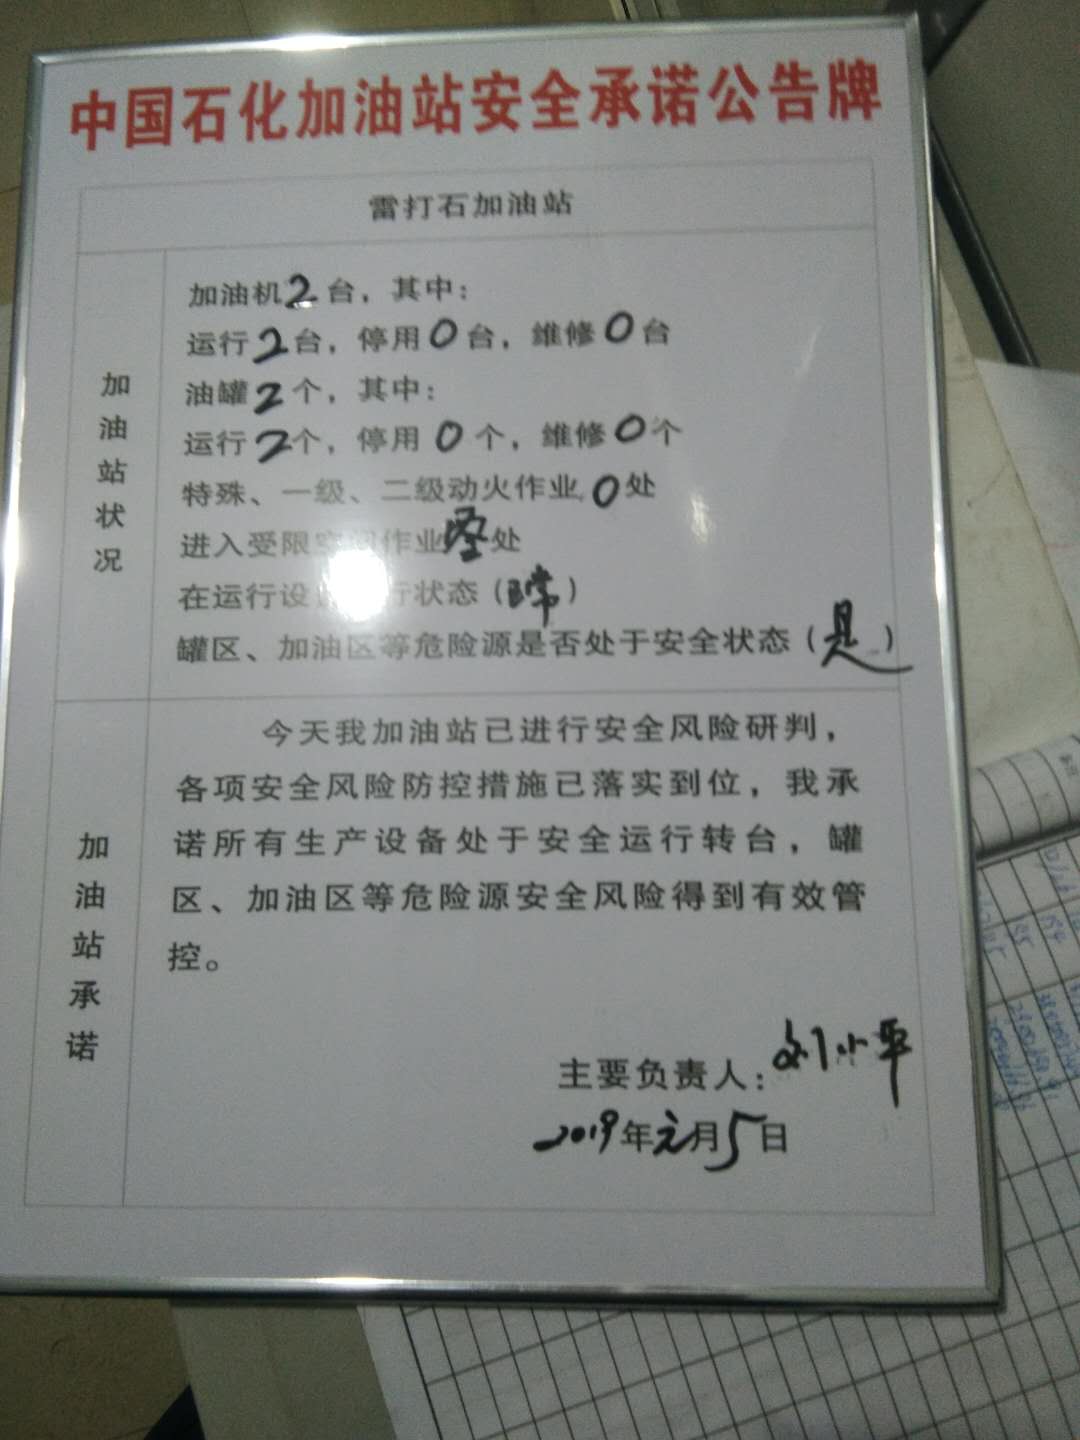 中国石化加油站安全承诺公告牌
雷打石加油站
加油站状况
加油机2台，其中：
运行2台，停用0台，维修0台
油罐2个，其中：
运行2个，停用0个，维修0个
特殊、一级、二级动火作业0处
进入受限空间作业 处
在运行设 行状态（正常）
罐区、加油区等危险源是否处于安全状态（是）
加油站承诺
今天我加油站已进行安全风险研判，
各项安全风险防控措施已落实到位，我承
诺所有生产设备处于安全运行转台，罐
区、加油区等危险源安全风险得到有效管
控。
主要负责人：刘小平
2019年元月5日